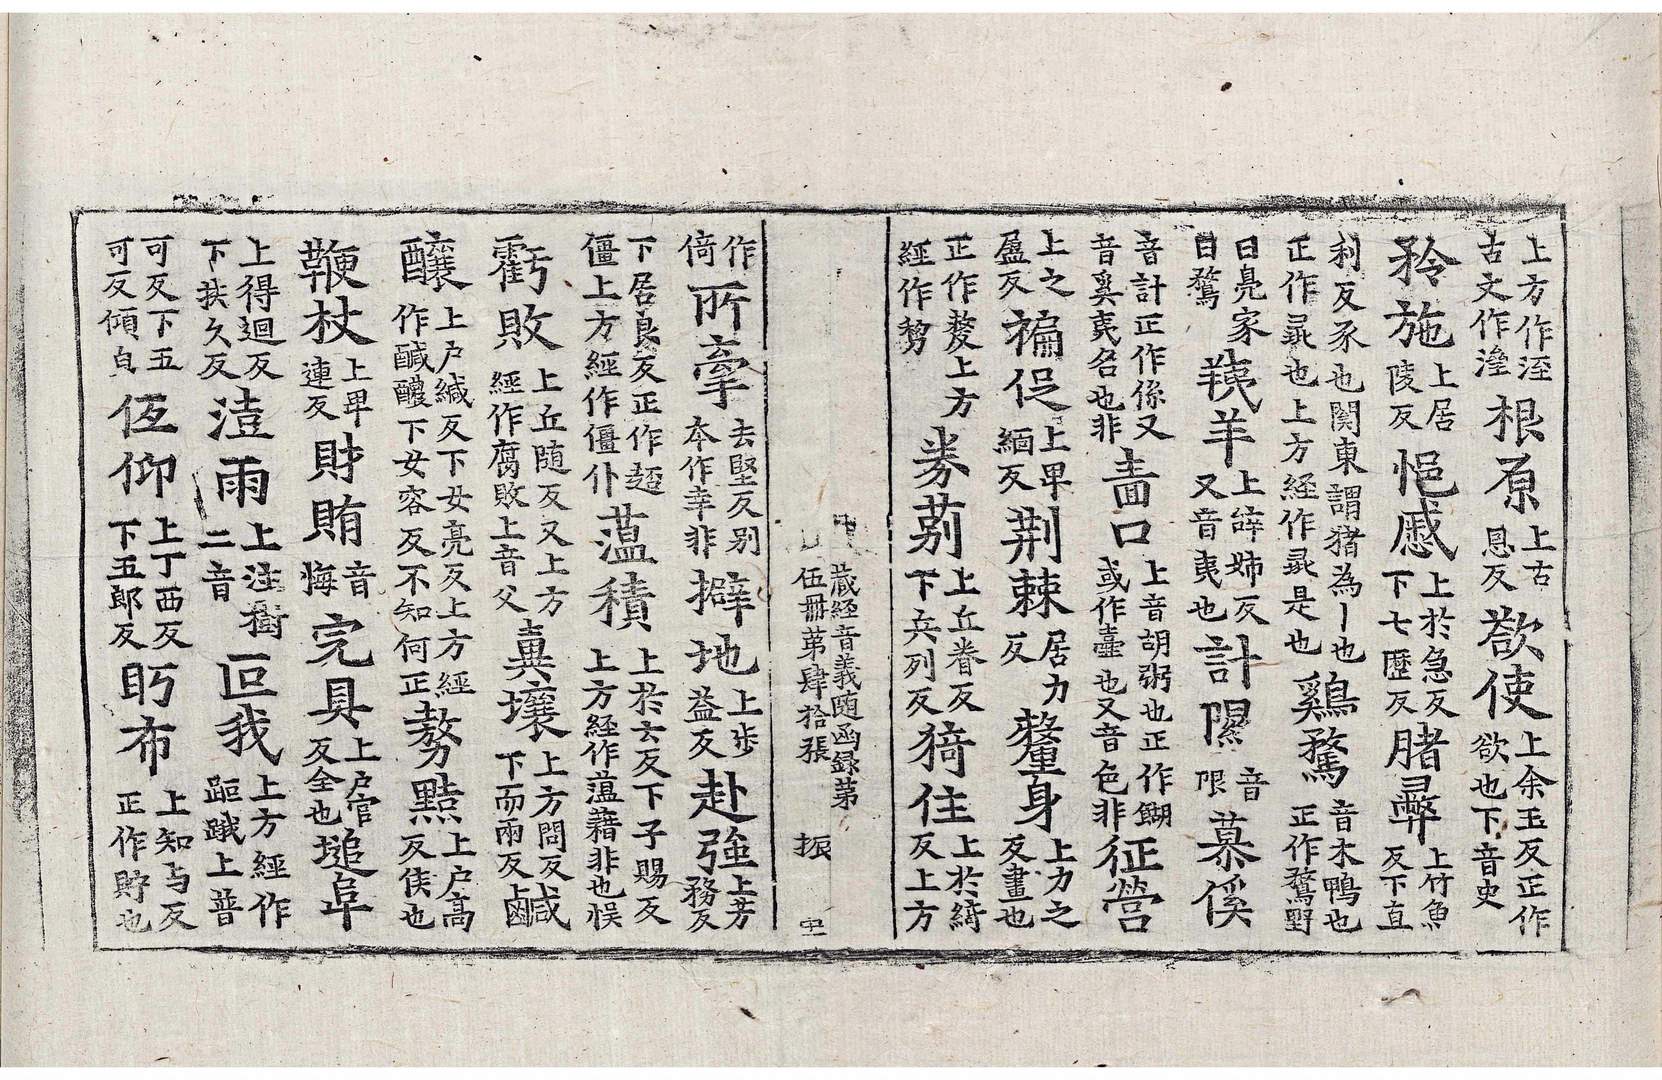 上方作洷古文作溰根原上古恩反欲使上余玉反正作欲也下音史
矜施上居陵反悒慼上於急反下七歷反䐗㣇上竹魚反下直
利反豕也関東謂猪為丨也正作彘也上方経作彘是也鷄騖音木鴨也正作鶩野
曰鳧家曰鶩羠羊上辝姉反又音夷也計隟音限慕傒
音計正作係又音奚夷名也非𣫘口上音胡粥也正作餬或作壷也又音色非征營
上之盈反褊促上卑緬反荆棘居力反犛身上力之反畫也
正作嫠上方経作剺 劵莂上丘眷反下兵列反猗住上於綺反上方
藏経音義随函録第 伍冊第肆拾張 振
作倚所牽去堅反別本作幸非擗地上歩益反赴強上芳務反
下居良反正作䞵僵上方経作僵仆薀積上於云反下子賜反上方経作蕰藉非也悮
虧敗上丘随反又上方経作腐敗上音父糞壤上方問反下而兩反鹹
釀上户緘反下女亮反上方経作醎醲下女容反不知何正㔠㸃上户高反俠也
鞭杖上卑連反財賄音悔完具上户官反全也塠阜
上得迴反下扶久反澍雨上注樹二音叵我上方経作距跋上普
可反下五可反傾皃伍仰上丁西反下五郎反眄布上知与反正作貯也